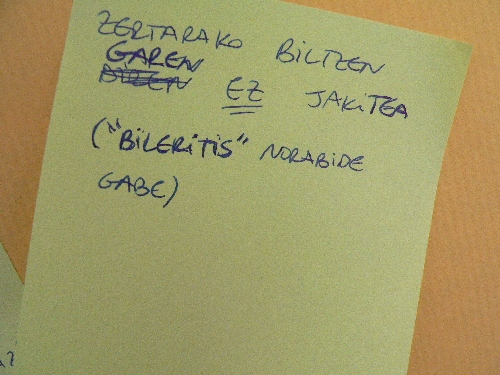 ZERTARAKO BILTZEN
GAREN
EZ JAKITEA
("BILERITIS" NORABIDE
GABE)